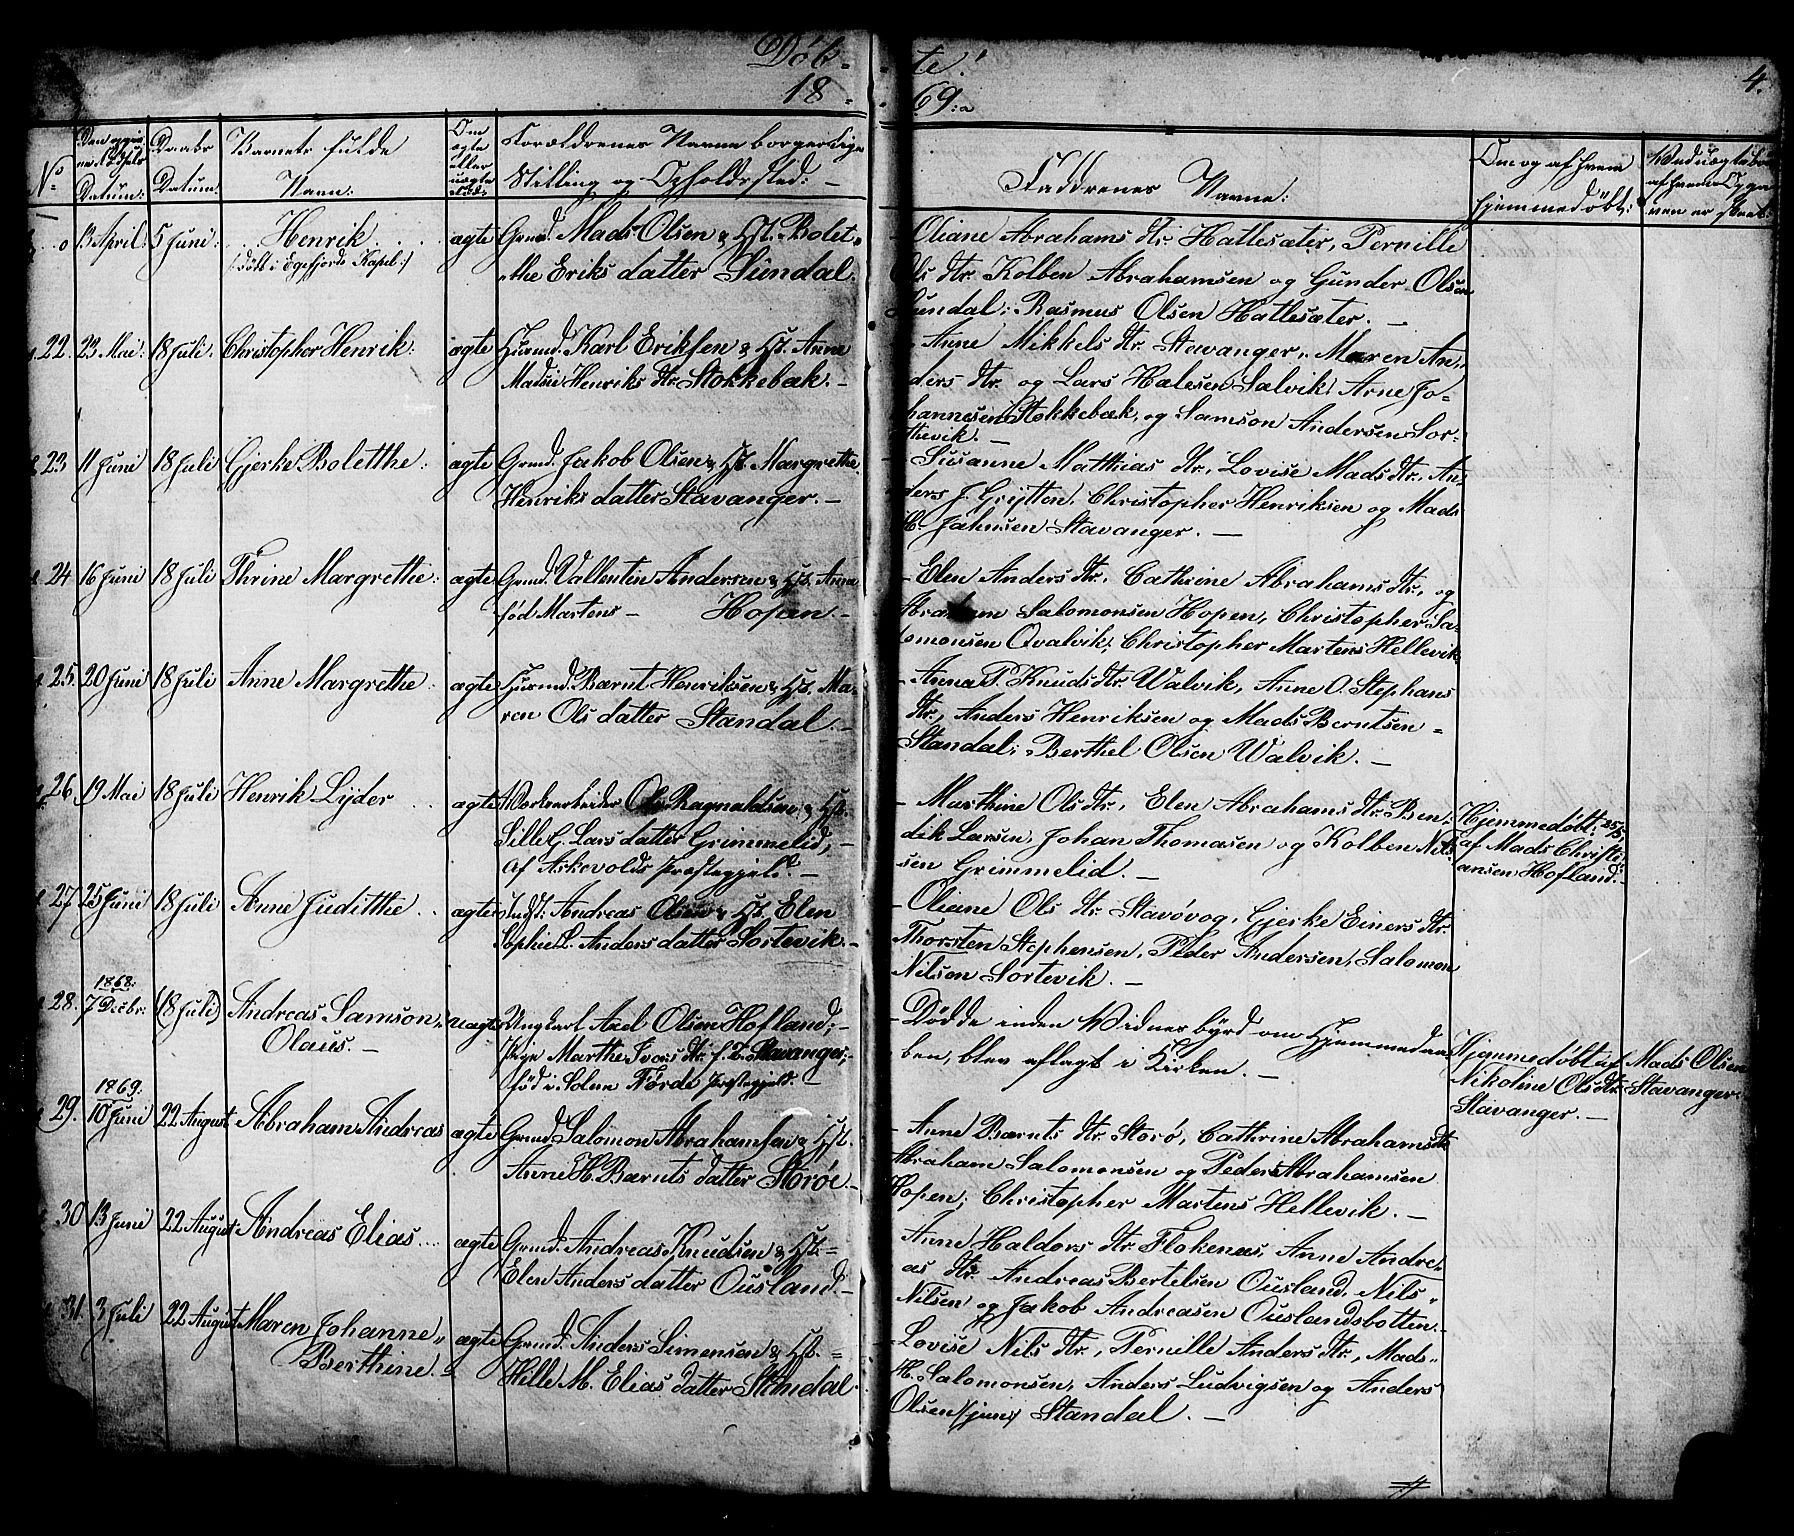 Döb-te.
1869.
4.
No
Daabs
Datum.
Barnets fulde
Navn:
Om
ægte
eller
uægte
Forældrenes Navne borgerlige
Stilling og Opholdssted: -
Faddrenes Navne:
Om og af hvem
hjemmedøbt:
13 April: 5 Juni: Henrik ægte Grmd. Mads Olsen & Hst. Bolet-
(: döbt i Egefjords Kapel :)
the Eriks datter Sundal.
Oliane Abrahams dtr. Hattesæter, Pernille
Ols dtr. Kolben Abrahamsen og Gunder Olsen
Sundal; Rasmus Olsen Hattesæter. -
22. 23 Mai: 18 Juli. Christopher Henrik: ægte Huusmd. Karl Eriksen & Hst. Anne
Madsie Henriks dtr. Stokkebæk. -
Anne Mikkels dtr. Stavanger, Maren An-
ders dtr. og Lars Halesen Salvik, Arne Jo-
hannesen Stokkebæk, og Samson Andersen Sor-
thevik. -
23 11 Juni 18 Juli Gjerke Boletthe: ægte Grmd. Jakob Olsen & Hst. Margrethe
Henriks datter Stavanger. -
Susanne Matthias dtr., Lovise Mads dtr., An-
ders J. Grytten, Christopher Henriksen og Mads
H. Jahnsen Stavanger. -
24 16 Juni 18 Juli Thrine Margrethe: ægte Grmd. Vallentin Andersen & Hst. Anna
född Martens - Hopen. -
- Elen Anders dtr., Cathrine Abrahams dtr., og
Abraham Salomonsen Hopen, Christopher Sa-
lomonsen Qvalvik; Christopher Martens Hellevik
25. 20 Juni 18 Juli Anne Margrethe: ægte Huusmd. Bærnt Henriksen & Hst. Ma-
ren Ols datter Standal. -
- Anna P. Knuds dtr. Walvik, Anne O. Stephans
dtr., Anders Henriksen og Mads Berntsen
Standal; Berthel Olsen Walvik. -
26. 19 Mai 18 Juli Henrik Lyder ægte Værkarbeider Ole Ragnaldsen & Hst.
Sille G. Lars datter Grimmelid, -
Af Askevolds Præstegjeld. -
- Marthine Ols dtr., Elen Abrahams dtr. Ben-
dik Larsen, Johan Thomasen og Kolben Nil-
sen Grimmelid. -
Hjemmedøbt 25/5
af Mads Christi-
ansen Hofland. -
27. 25 Juni 18 Juli Anne Judithe ægte Andreas Olsen & Hst. Elen
Sophie L. Anders datter Sortevik. -
- Oliane Ols dtr. Stavøvog, Gjerke Einers dtr.
Thorsten Stephensen, Peder Andersen, Salomon
Nilsen Sortevik. -
1868:
28. 7 Decbr. (18 Juli) Andreas Samson, uægte Ungkarl Axel Olsen Hofland; -
Olaus. -
Pige Marthe Ivers dtr. Stavanger; -
född i Førde Præstegjeld. -
- Dödde inden Vidnesbyrd om Hjemmedaa-
ben, blev aflagt i Kirken. -
Hjemmedøbt af
Nikoline Ols dtr.
Stavanger. -
Mads Olsen
Stavanger
1869:
29. 10 Juni 22 August Abraham Andreas ægte Grmd. Salomon Abrahamsen & Hst.
Anne H. Bærnts datter Storøe. -
- Anne Bærnts dtr. Storø, Cathrine Abrahamsdtr.
Abraham Salomonsen og Peder Abrahamsen
Hopen; Christopher Martens Hellevik. -
30 13 Juni 22 August Andreas Elias. ægte Grmd. Andreas Knudsen & Hst. -
Elen Anders datter Ousland. -
Anne Haldors dtr. Flokenæs, Anne Andre-
as dtr. Andreas Bertelsen Ousland, Nils
Nilsen og Jakob Andreasen Ouslandsbotten. -
31. 3 Juli 22 August Maren Johanne ægte Grmd. Anders Simensen & Hst. -
Berthine. -
Hille M. Elias datter Standal.
Lovise Nils dtr., Pernille Anders dtr., Mads
H. Salomonsen, Anders Ludvigsen og Anders
Olsen (jun.) Standal. -